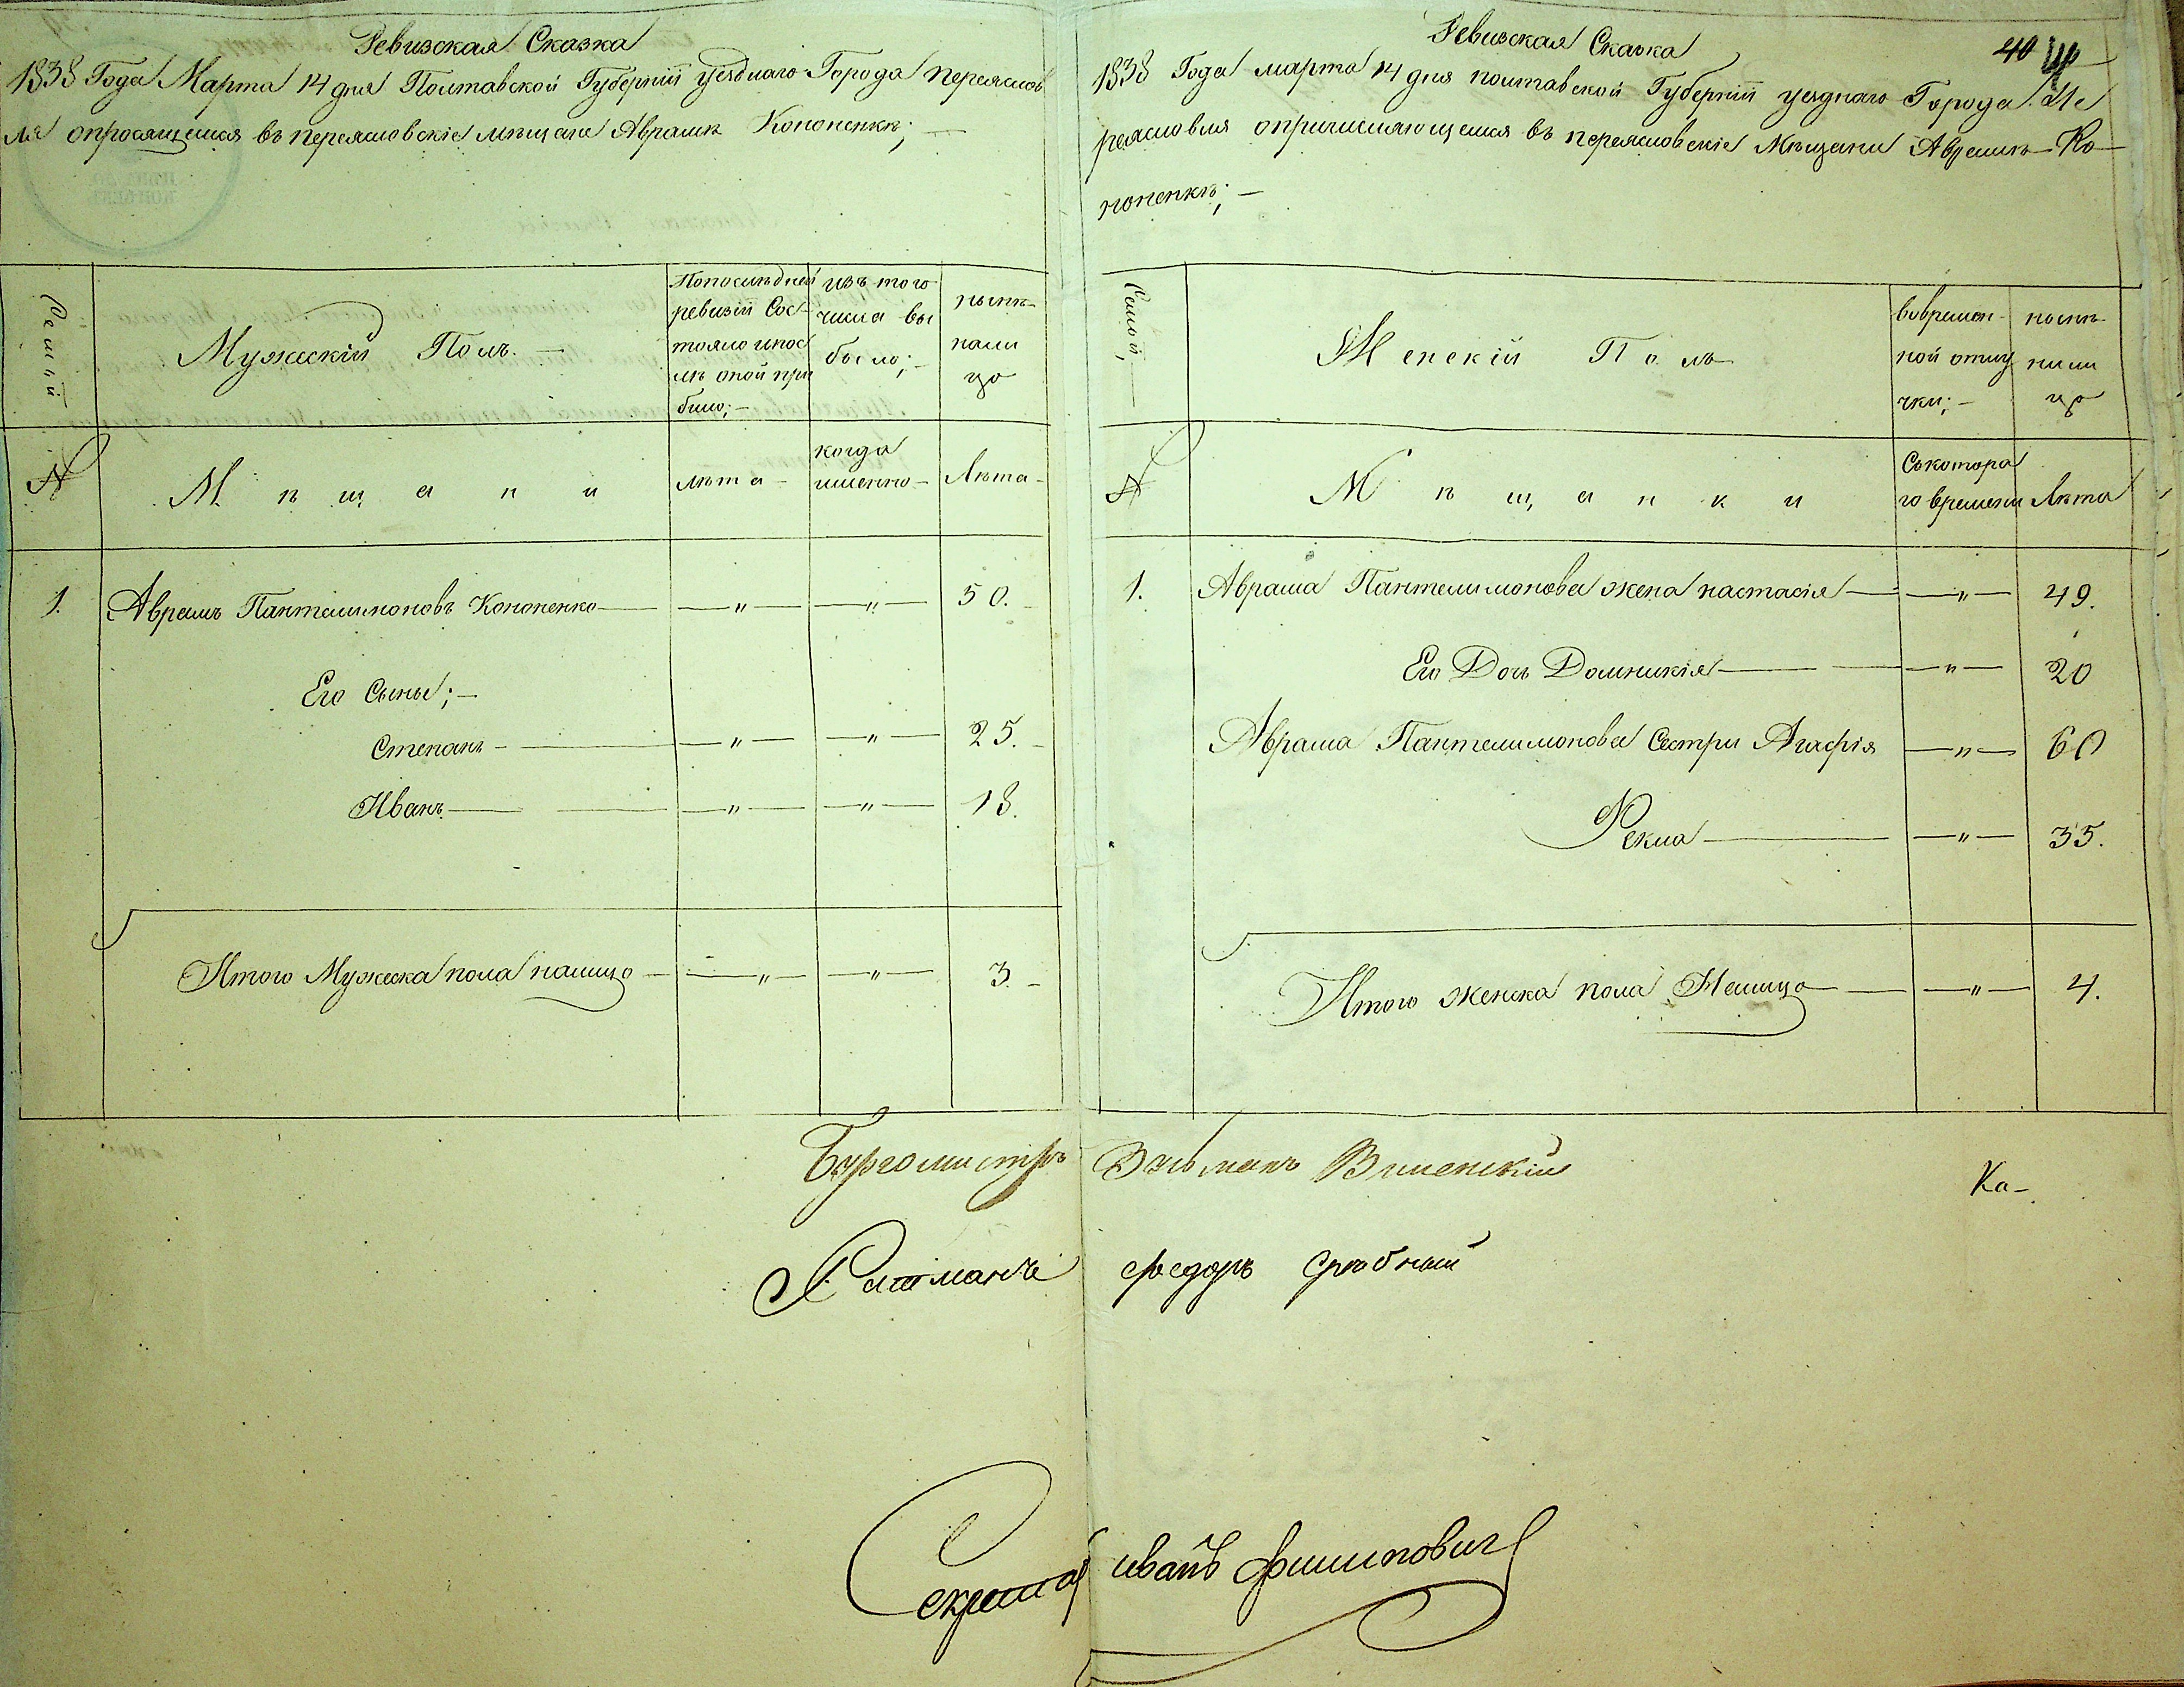 Ревизская Сказка
1838 Года Марта 14 дня Полтавской Губернии уезднаго Города Переяслов
ля опросящемся въ переясловские мѣщане Аврамѣ Кононенкѣ; —
Семьи
Мужескій Полъ. —
Попоследней
ревизіи Сос-
тояло ипос
лѣ оной при
было; —
изъ того
числа вы
было; —
нынѣ
нали
цо
№
Мѣщани
лѣта —
когда
именно —
Лѣта —
1. Аврамъ Пантелимоновъ Кононенко — " — — " — 50.
Его Сыны; —
Степанъ — — " — — " — 25. —
Иванъ — — " — — " — 18.
Итого Мужеска пола налицо — — " — — " — 3. —
Ревизская Сказка
40
1838 Года марта 14 дня полтавской Губернии уезднаго Города Пе
реясловля опричисляющемся въ переясловскіе Мѣщани Аврамѣ Ко
ноненкѣ; —
Семьи, —
Женскій Полъ
вовремен-
ной отлу
чки; —
нынѣ
нали
цо
№
Мѣщанки
Скотора
го времени
Лѣта
1. Аврама Пантелимонова жена настасія — — " — 49.
Его Дочь Домникія — — " — 20
Аврама Пантелимонова Сестри Агафія — " — 60
Фекла — — " — 35.
Итого женска пола Налицо — — " — 4.
Бургомистръ
Ка-
Ратманъ федоръ Срюбный
Секретарь иванъ филиповичъ